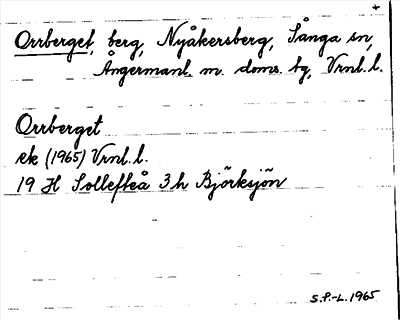 Orrberget, berg, Nyåkersberg, Sånga sn,
Ångermanl. m. doms. tg, Vrnl. l.
Orrberget
ek (1965) Vrnl. l.
19 H Sollefteå 3 h Björksjön
S.P.-L. 1965